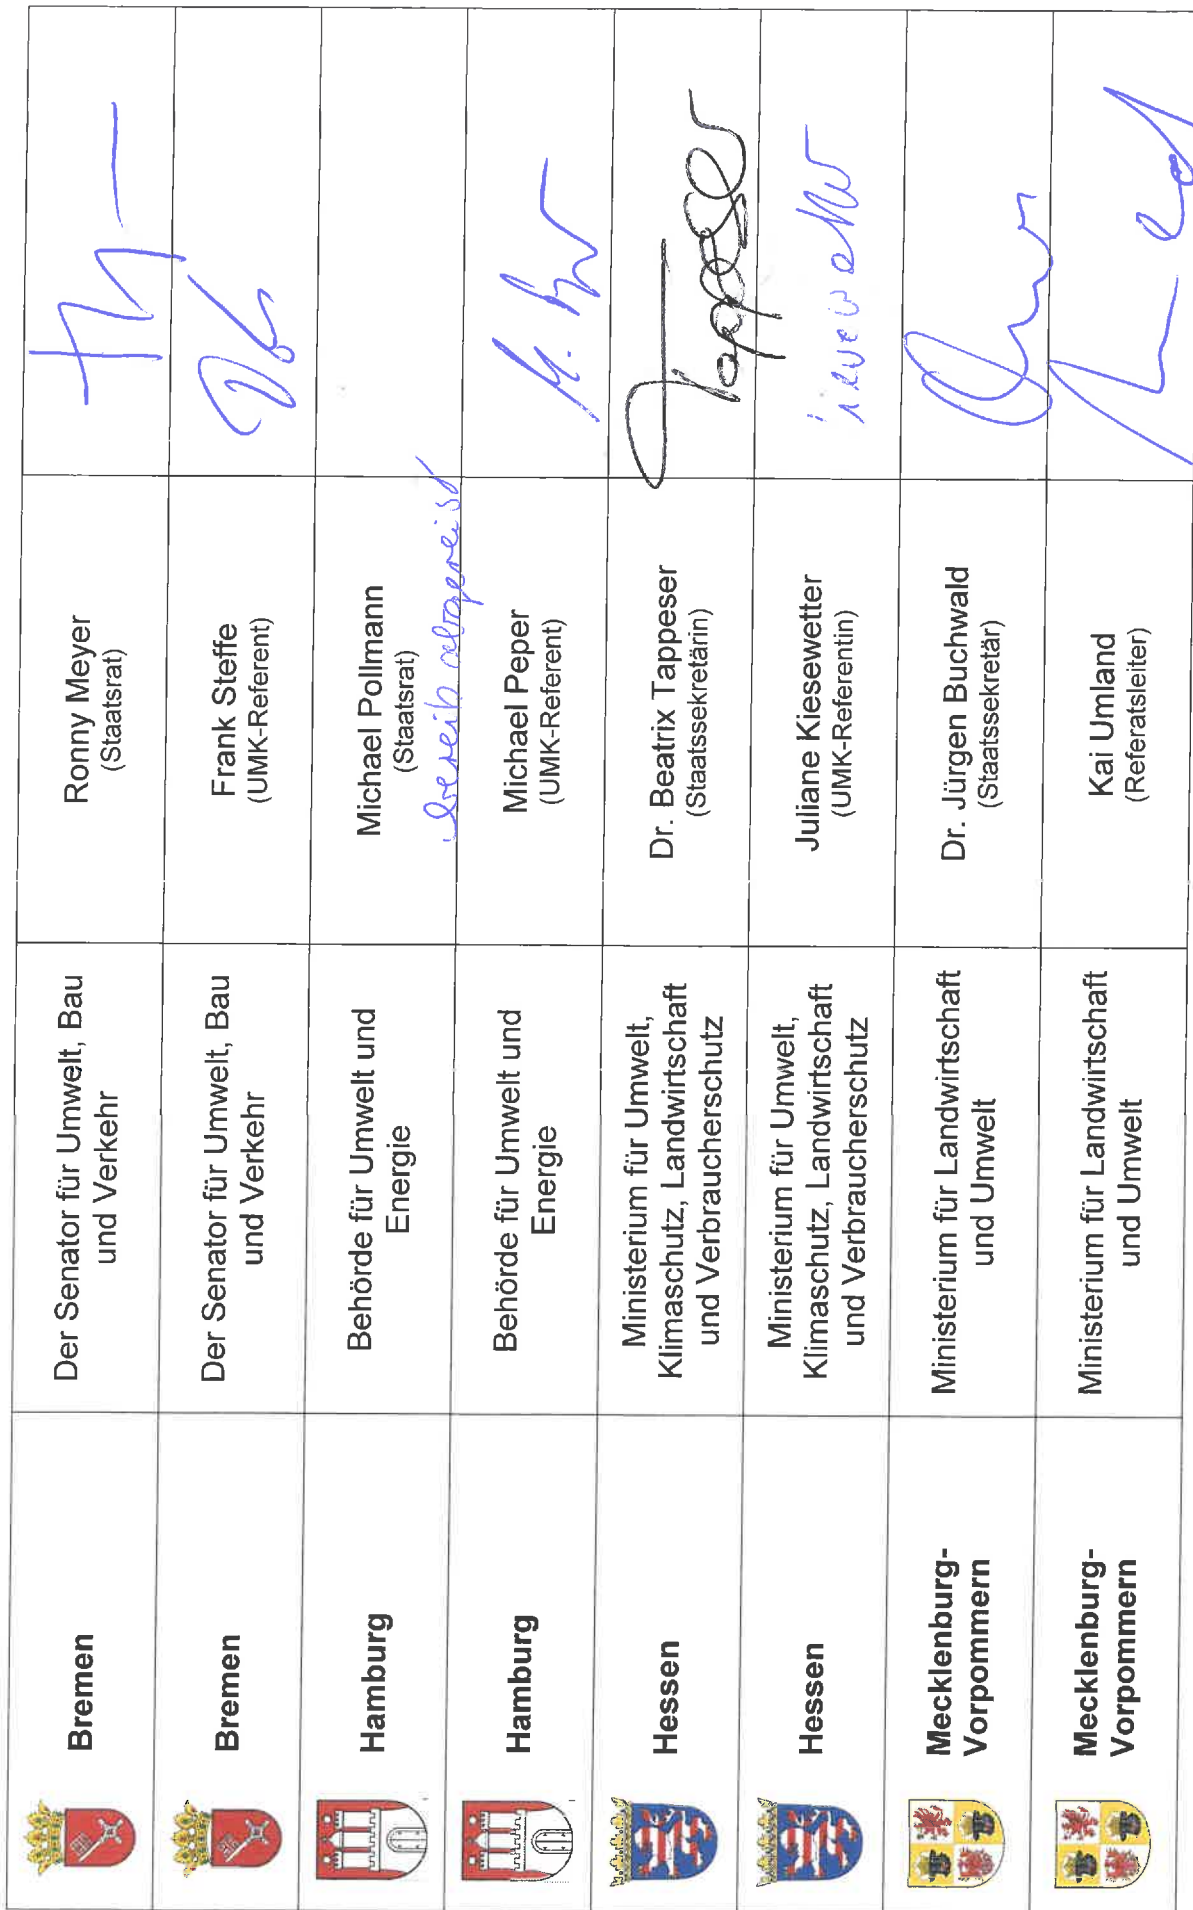 Bremen
Der Senator für Umwelt, Bau
und Verkehr
Ronny Meyer
(Staatsrat)
Bremen
Der Senator für Umwelt, Bau
und Verkehr
Frank Steffe
(UMK-Referent)
Hamburg
Behörde für Umwelt und
Energie
Michael Pollmann
(Staatsrat)
bereits abgereist
Hamburg
Behörde für Umwelt und
Energie
Michael Peper
(UMK-Referent)
Hessen
Ministerium für Umwelt,
Klimaschutz, Landwirtschaft
und Verbraucherschutz
Dr. Beatrix Tappeser
(Staatssekretärin)
Tappeser
Hessen
Ministerium für Umwelt,
Klimaschutz, Landwirtschaft
und Verbraucherschutz
Juliane Kiesewetter
(UMK-Referentin)
Mecklenburg-
Vorpommern
Ministerium für Landwirtschaft
und Umwelt
Dr. Jürgen Buchwald
(Staatssekretär)
Mecklenburg-
Vorpommern
Ministerium für Landwirtschaft
und Umwelt
Kai Umland
(Referatsleiter)